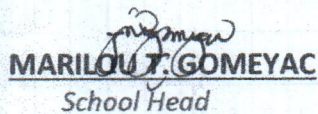 MARILOU T. GOMEYAC
School Head